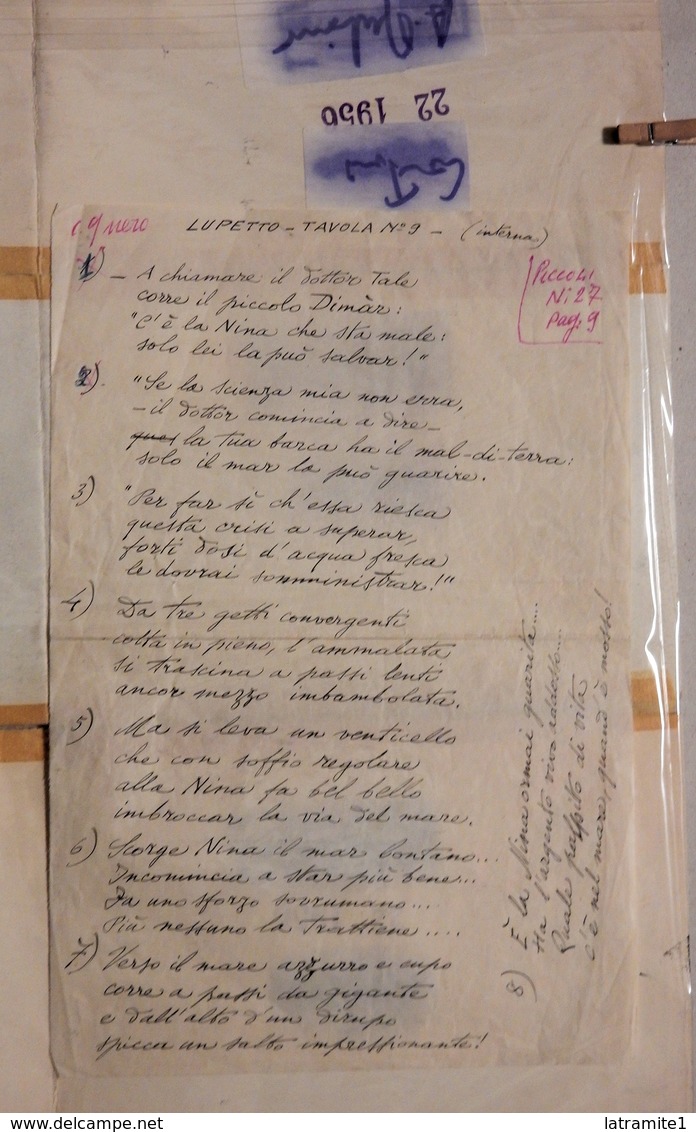 22 1956
c. 9 nero
LUPETTO - TAVOLA N° 9 - (interna)
PICCOLI
N: 27
Pag. 9
1) - A chiamare il dottor Tale
corre il piccolo Dimàr:
"C'è la Nina che sta male:
solo lei la può salvar!"
2) "Se la scienza mia non erra,
- il dottor comincia a dire -
la tua barca ha il mal-di-terra:
solo il mar la può guarire.
3) "Per far sì ch'essa riesca
questa crisi a superar,
forti dosi d'acqua fresca
le dovrai somministrar!"
4) Da tre getti convergenti
colta in pieno, l'ammalata
si trascina a passi lenti
ancor mezzo imbambolata.
5) Ma si leva un venticello
che con soffio regolare
alla Nina fa bel bello
imbroccar la via del mare.
6) Scorge Nina il mar lontano...
Incomincia a star più bene...
Fa uno sforzo sovrumano...
Più nessuno la trattiene....
7) Verso il mare azzurro e cupo
corre a passi da gigante
e dall'alto d'un dirupo
spicca un salto impressionante!
8) È la Nina ormai guarita....
Ha l'argento vivo addosso....
Quale palpito di vita
c'è nel mare, quand'è mosso!
www.delcampe.net
latramite1